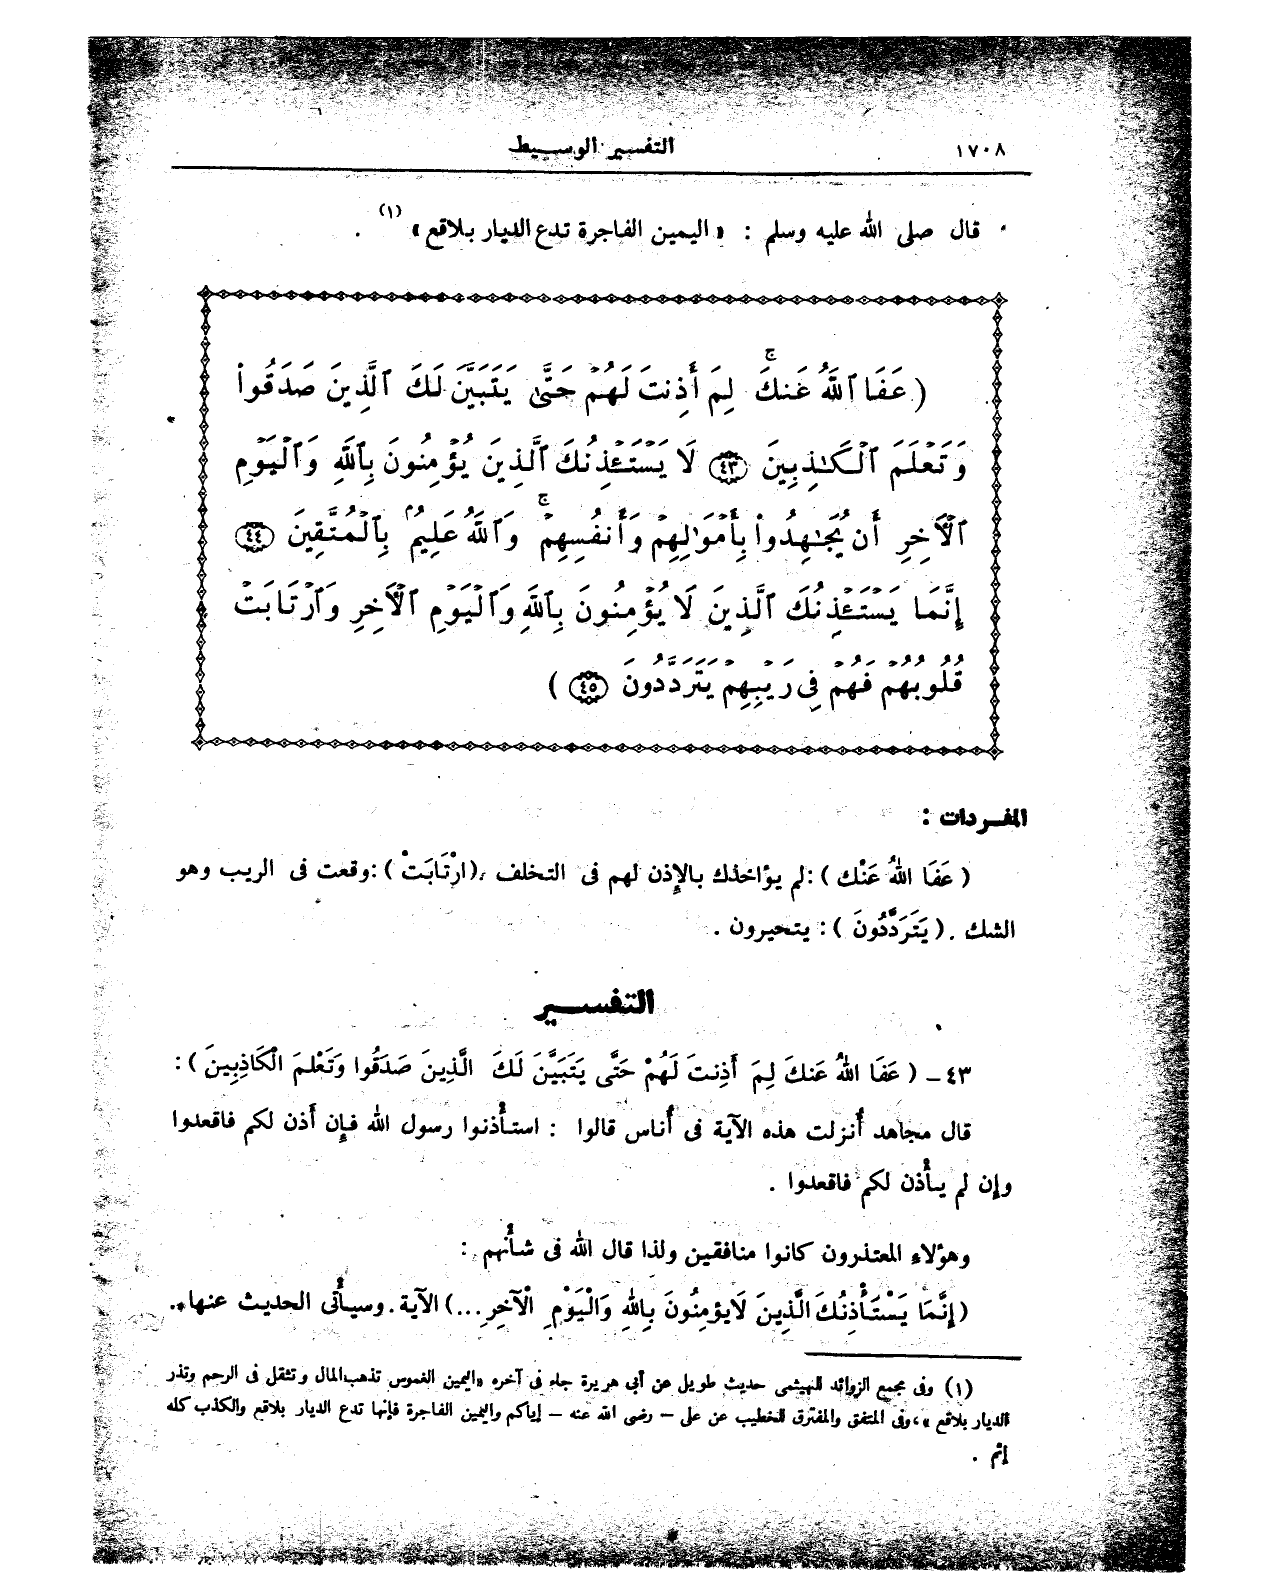 ١٧٠٨ التفسير الوسيط
قال صلى الله عليه وسلم : « اليمين الفاجرة تدع الديار بلاقع » (١) .
( عَفَا ٱللَّهُ عَنكَ ۚ لِمَ أَذِنتَ لَهُمْ حَتَّىٰ يَتَبَيَّنَ لَكَ ٱلَّذِينَ صَدَقُوا۟
وَتَعْلَمَ ٱلْكَـٰذِبِينَ ٤٣ لَا يَسْتَـْٔذِنُكَ ٱلَّذِينَ يُؤْمِنُونَ بِٱللَّهِ وَٱلْيَوْمِ
ٱلْـَٔاخِرِ أَن يُجَـٰهِدُوا۟ بِأَمْوَٰلِهِمْ وَأَنفُسِهِمْ ۗ وَٱللَّهُ عَلِيمٌۢ بِٱلْمُتَّقِينَ ٤٤
إِنَّمَا يَسْتَـْٔذِنُكَ ٱلَّذِينَ لَا يُؤْمِنُونَ بِٱللَّهِ وَٱلْيَوْمِ ٱلْـَٔاخِرِ وَٱرْتَابَتْ
قُلُوبُهُمْ فَهُمْ فِى رَيْبِهِمْ يَتَرَدَّدُونَ ٤٥ )
المفـردات :
( عَفَا اللهُ عَنْك ) : لم يؤاخذك بالإِذن لهم فى التخلف ، ( ارْتَابَتْ ) : وقعت فى الريب وهو
الشك . ( يَتَرَدَّدُونَ ) : يتحيرون .
التفسـير
٤٣ ـ ( عَفَا اللهُ عَنكَ لِمَ أَذِنتَ لَهُمْ حَتَّى يَتَبَيَّنَ لَكَ الَّذِينَ صَدَقُوا وَتَعْلمَ الْكَاذِبِينَ ) :
قال مجاهد أُنزلت هذه الآية فى أُناس قالوا : استأْذنوا رسول الله فإِن أَذن لكم فاقعدوا
وإن لم يأْذن لكم فاقعدوا .
وهؤلاء المعتذرون كانوا منافقين ولذا قال الله فى شأْنهم :
( إِنَّمَا يَسْتَأْذِنُكَ الَّذِينَ لَايؤمِنُونَ بِاللهِ وَالْيَوْمِ الْآخِرِ ... ) الآية . وسيأْتى الحديث عنها .
(١) وفى مجمع الزوائد للهيثمى حديث طويل عن أبى هريرة جاء فى آخره « اليمين الغموس تذهب المال وتثقل فى الرحم وتذر
الديار بلاقع » ، وفى المتفق والمفترق للخطيب عن على – رضى الله عنه – إياكم واليمين الفاجرة فإنها تدع الديار بلاقع والكذب كله
إثم .